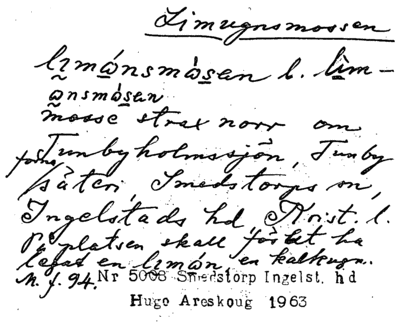 Limugnsmossen
lɪmánsmȯsen l. lìm-
ansmȯsen
mosse strax norr om
Tunbyholmssjön, Tunby
förra säteri, Smedstorps sn,
Ingelstads hd, Krist. l.
På platsen skall förut ha
legat en lɪmán, en kalkugn.
M. f. 94. Nr 5008 Smedstorp Ingelst. hd
Hugo Areskoug 1963